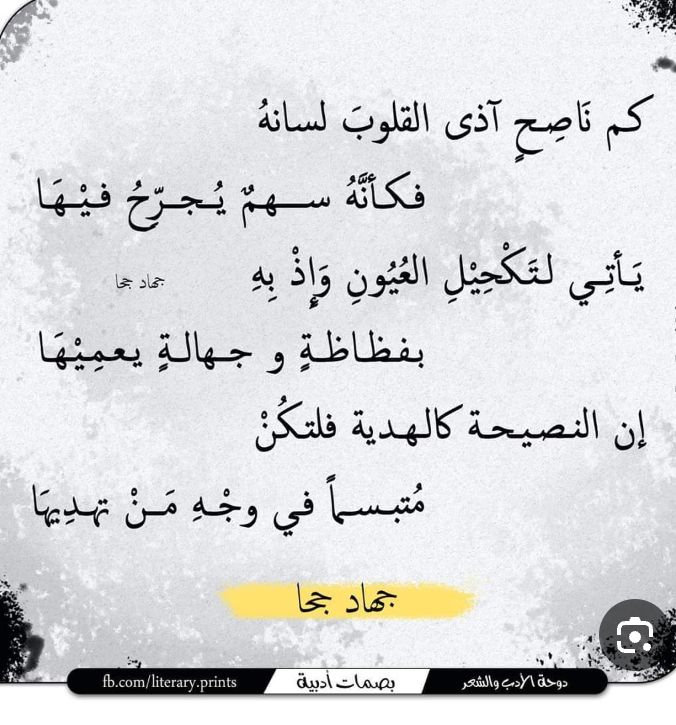 كم نَاصِحٍ آذى القلوبَ لسانهُ
فكأنَّهُ سهمٌ يُجرّحُ فيْهَا
يَأتِي لتَكْحِيْلِ العُيُونِ وَإِذْ بِهِ
جهاد جحا
بفظاظةٍ و جهالةٍ يعمِيْهَا
إن النصيحة كالهدية فلتكُنْ
مُتبسماً في وجْهِ مَنْ تهدِيهَا
جهاد جحا
دوحة الأدب والشعر
بصمات أدبية
fb.com/literary.prints